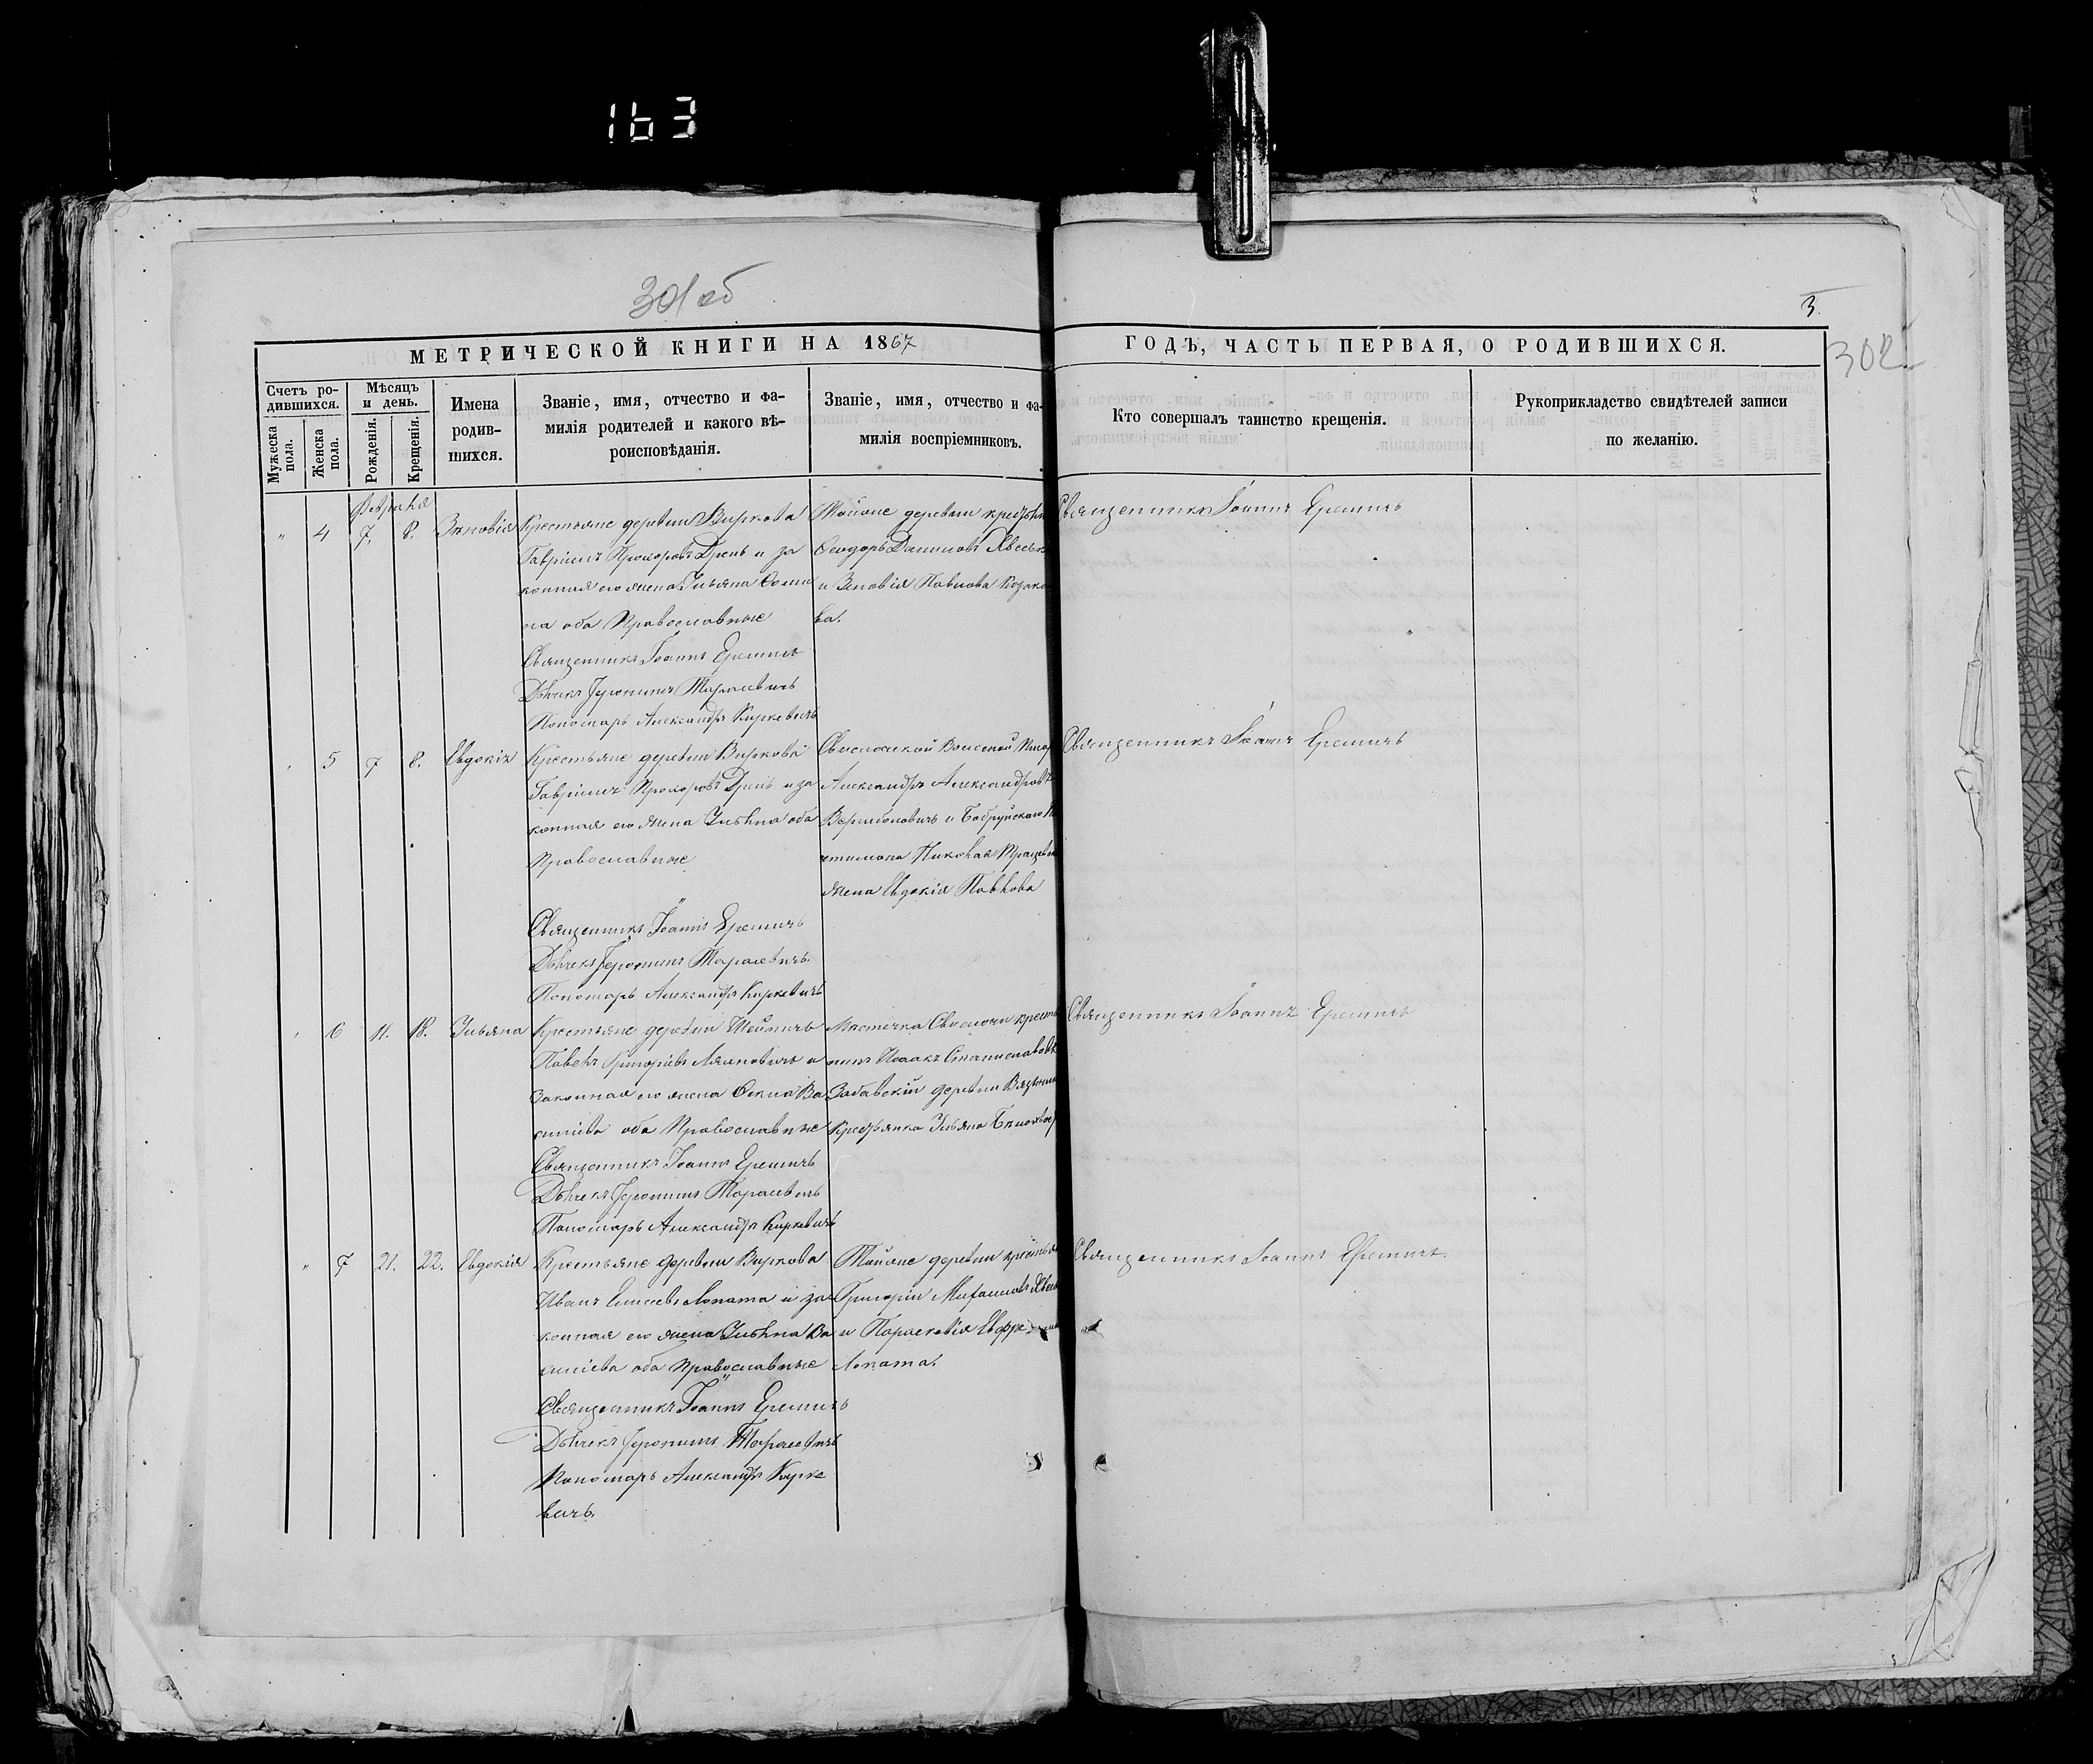 163
301 об
3.
302
МЕТРИЧЕСКОЙ КНИГИ НА 1867
ГОДЪ, ЧАСТЬ ПЕРВАЯ, О РОДИВШИХСЯ.
Счетъ ро-
дившихся.
Мужеска
пола.
Женска
пола.
Мѣсяцъ
и день.
Рожденія.
Крещенія.
Имена
родив-
шихся.
Званіе, имя, отчество и фа-
милія родителей и какого вѣ-
роисповѣданія.
Званіе, имя, отчество и фа-
милія воспріемниковъ.
Кто совершалъ таинство крещенія.
Рукоприкладство свидѣтелей записи
по желанію.
Февраля
" 4 7. 8. Зиновія
Крестьяне деревни Виркова
Гавріилъ Прохоровъ Грень и за
конная его жена Ульяна
на оба Православные
Священникъ Іоаннъ Еремичъ
Дьячекъ Іеронимъ Тарасевичъ
Пономарь Александръ Киркевичъ
Тойже деревни
Феодоръ Даниловъ
и Зиновія Павлова
ва.
Священникъ Іоаннъ Еремичъ
" 5 7 8. Евдокія
Крестьяне деревни Виркова
Гавріилъ Прохоровъ Грень и за
конная его жена Ульяна оба
Православные
Священникъ Іоаннъ Еремичъ
Дьячекъ Іеронимъ Тарасевичъ.
Пономарь Александръ Киркевичъ
Свислочской Волости
Александръ Александровъ
и Бобруйскаго
Николая
жена Евдокія Павлова
Священникъ Іоаннъ Еремичъ
" 6 11. 18. Ульяна
Крестьяне деревни
Павелъ Григорьевъ Ляхновичъ и
Законная его жена Ва
силіева оба Православные
Священникъ Іоаннъ Еремичъ
Дьячекъ Іеронимъ Тарасевичъ
Пономарь Александръ Киркевичъ
Мѣстечка Свислочи кресть
нинъ Исаакъ Станиславовъ
Забавскій деревни
Крестьянка Ульяна
Священникъ Іоаннъ Еремичъ
" 7 21. 22. Евдокія
Крестьяне деревни Виркова
Иванъ Елисеевъ Лопата и за
конная его жена Ульяна Ва
силіева оба Православные
Священникъ Іоаннъ Еремичъ
Дьячекъ Іеронимъ Тарасевичъ
Пономарь Александръ Кирке
вичъ.
Тойже деревни крестья
Григорій Михаиловъ
и Параскевія
Лопата.
Священникъ Іоаннъ Еремичъ.